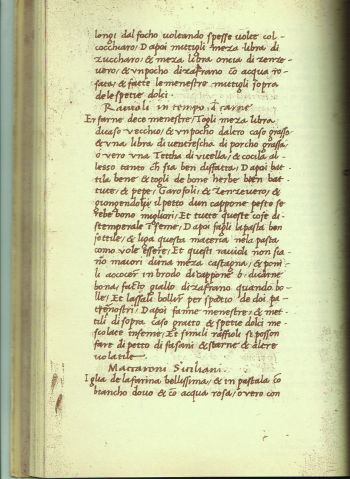 longi dal focho voleando spesse volte col
cocchiaro / Dapoi mittigli meza libra di
zuccharo / & meza libra oncia di zenze-
vero / & unpocho di zafrano cō acqua ro-
sata / & facte le menestre mittigli sopra
de le spetie dolci
Ravioli in tempo d carne
Er farne dece menestre / Togli meza libra
di caso vecchio / & unpocho daltro caso grasso
& una libra di ventrescha di porcho grassa
o vero una Tettha di vitella / & cocila al-
lesso tanto ch sia ben disfatta / Dapoi bat-
tila bene & togli de bone herbe ben bat-
tute / & pepe / Garofoli / & zenzevero / &
giongendoli il petto dun cappone pesto se
rebe bono migliori / Et tutte queste cose di-
stemperale Inseme / Dapoi fagli la pasta ben
sottile / & liga questa materia nela pasta
como vole essere / Et questi ravioli non sia-
no maiori duna meza castagna / & poni-
li accocer in brodo di cappone o di carne
bona / facto giallo di zafrano quando bo-
lle / Et lassali bollir per spatio de doi pa-
trenostri / Dapoi fanne menestre / & met-
tili di sopra caso gratto & spetie dolci me-
scolate inseme / Et simili raffioli si posson
fare di petto di fasani & starne & altre
volatile
Maccaroni Siciliani
Iglia de la farina bellissima / & inpastala cō
biancho dovo & cō acqua rosa / overo con